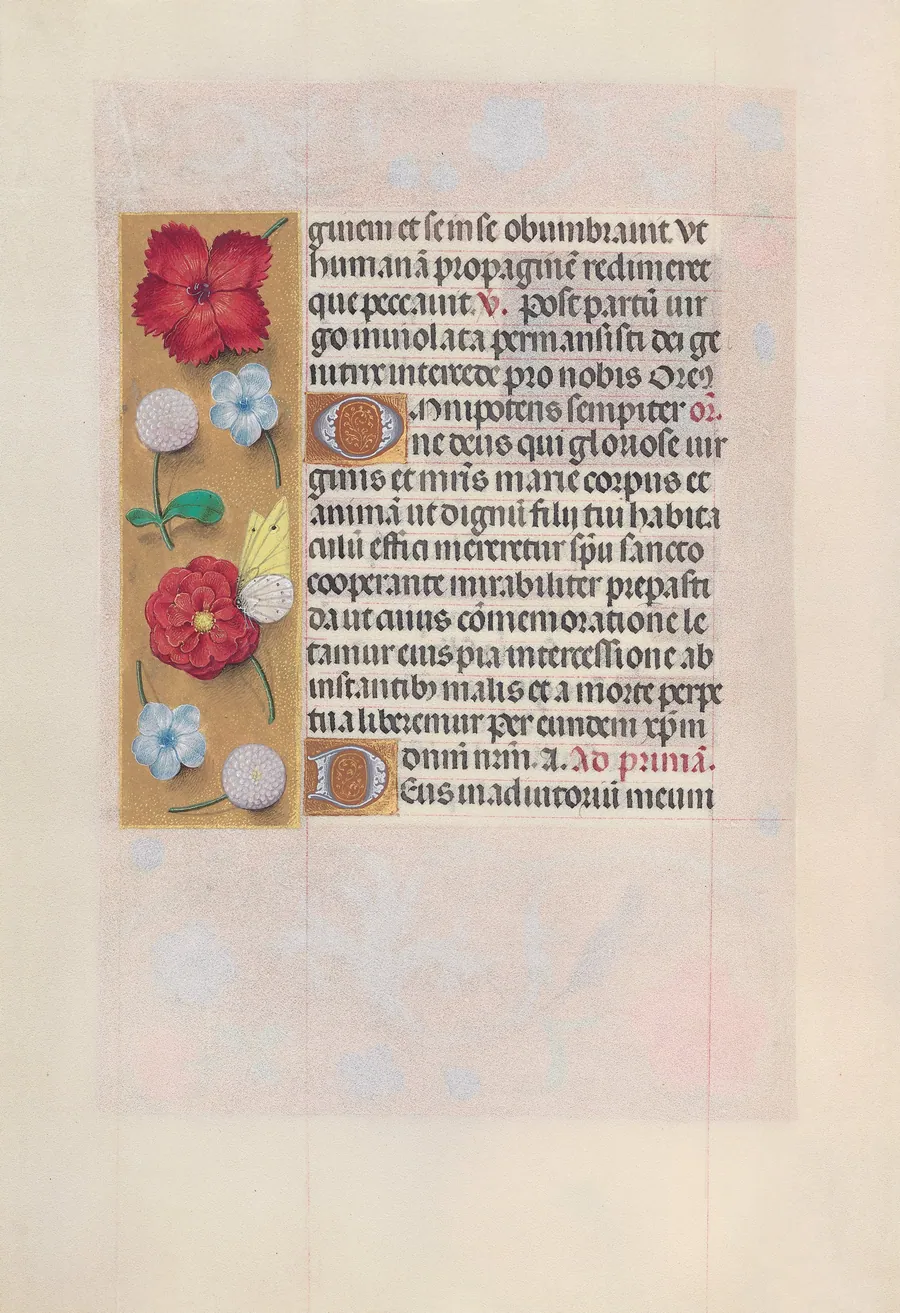 ginem et se in se obumbrauit. Vt
humanā propaginē redimeret
que peccauit. V̕. Post partū uir
go inuiolata permansisti dei ge
nitrix intercede pro nobis Oreꝯ
OMnipotens sempiter or̄.
ne deus qui gloriose uir
ginis et mr̄is marie corpus et
animā ut dignū filij tui habita
culū effici mereretur sp̄u sancto
cooperante mirabiliter preparasti
da ut cuius cōmemoratione le
tamur eius pia intercessione ab
instantibꝫ malis et a morte perpe
tua liberemur Per eundem xp̄m
dnm̄ nrm̄. A. Ad primā.
DEus in adiutoriū meum